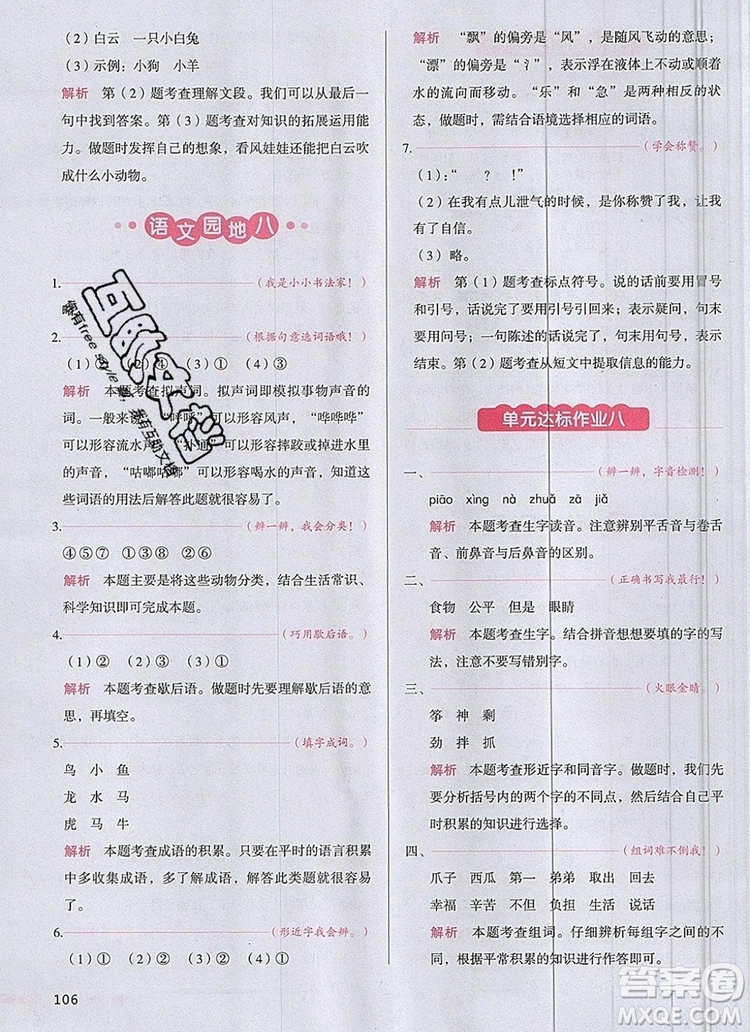 （2）白云　一只小白兔
（3）示例：小狗　小羊
解析　第（2）题考查理解文段。我们可以从最后一
句中找到答案。第（3）题考查对知识的拓展运用能
力。做题时发挥自己的想象，看风娃娃还能把白云吹
成什么小动物。
语文园地八
1.（我是小小书法家！）
2.（根据句意选词语哦！）
（1）④（2）③（3）②（4）①
解析　本题考查拟声词。拟声词即模拟事物声音的
词。一般来说“呼呼”可以形容风声，“哗哗哗”
可以形容流水声，“扑通”可以形容摔跤或掉进水里
的声音，“咕嘟咕嘟”可以形容喝水的声音。知道这
些词语的用法后解答此题就很容易了。
3.（辨一辨，我会分类！）
④⑤⑦　①③⑧　②⑥
解析　本题主要是将这些动物分类，结合生活常识、
科学知识即可完成本题。
4.（巧用歇后语。）
（1）②　（2）③　（3）①
解析　本题考查歇后语。做题时先要理解歇后语的意
思，再填空。
5.（填字成词。）
鸟　小　鱼
龙　水　马
虎　马　牛
解析　本题考查成语的积累。只要在平时的语言积累
中多收集成语，多了解成语，做此类题就会很容易。
6.（形近字我会辨。）
106
解析　“飘”的偏旁是“风”，是随风飞动的意思；
“漂”的偏旁是“氵”，表示浮在液体上不动或顺着
水的流向而移动。“乐”和“急”是两种相反的状
态，做题时，需结合语境选择相应的词语。
7.（学会称赞。）
（1）：“　？　！”
（2）在我有点儿泄气的时候，是你称赞了我，让我
有了自信。
（3）略。
解析　第（1）题考查标点符号。说的话前要用冒号
和引号，话说完了要用引号引回来。表示疑问，句末
要用问号；一句陈述的话说完了，句末要用句号表示
结束。第（2）题考查从短文中提取信息的能力。
单元达标作业八
一、（辨一辨，字音检测！）
piāo　xìng　nà　zhuǎ　zā　jiǎ
解析　本题考查生字读音。注意辨别平舌音与卷舌
音、前鼻音与后鼻音的区别。
二、（正确书写我最行！）
食物　公平　但是　眼睛
解析　本题考查生字。结合拼音想想要填的字的写
法，注意不要写错别字。
三、（火眼金睛。）
筝　神　剩
劲　拌　抓
解析　本题考查形近字和同音字。做题时，我们先
要分析括号内的两个字的不同点，然后结合自己平
时积累的知识进行选择。
四、（组词难不倒我！）
爪子　西瓜　第一　弟弟　取出　回去
幸福　辛苦　不但　担负　乱叫　说话
解析　本题考查组词。仔细辨析每组字之间的不
同，根据平常积累的知识进行作答即可。
互助文档
你有free style嘛，我有互助文档
答案圈
MXQE.COM